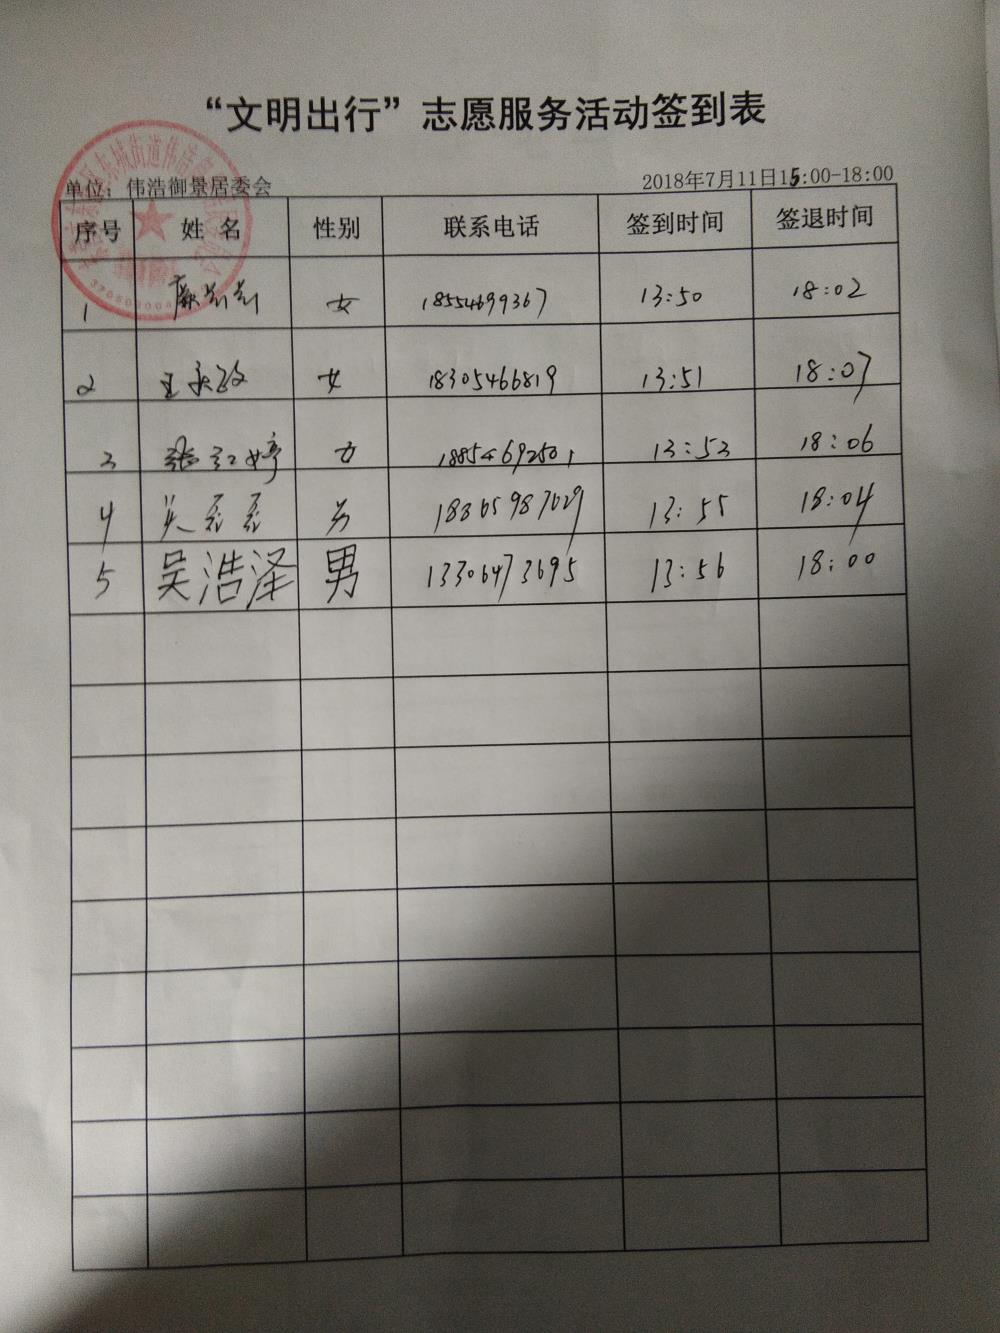 “文明出行”志愿服务活动签到表
单位：伟浩御景居委会 2018年7月11日15:00-18:00
序号 姓 名 性别 联系电话 签到时间 签退时间
1 女 18554699367 13:50 18:02
2 王 政 女 18305466819 13:51 18:07
3 张红婷 女 18854692501 13:53 18:06
4 吴磊磊 男 18365987029 13:55 18:04
5 吴浩泽 男 13306473695 13:56 18:00